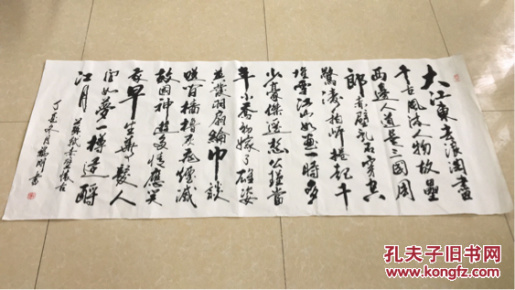 大江東去浪淘盡
千古風流人物故壘
西邊人道是三國周
郎赤壁亂石穿空
驚濤拍岸捲起千
堆雪江山如畫一時多
少豪傑遥想公瑾當
年小喬初嫁了雄姿
英發羽扇綸巾談
笑間檣櫓灰飛煙滅
故國神遊多情應笑
我早生華髮人
間如夢一樽還酹
江月
蘇軾赤壁懷古
孔夫子旧书网
www.kongfz.com